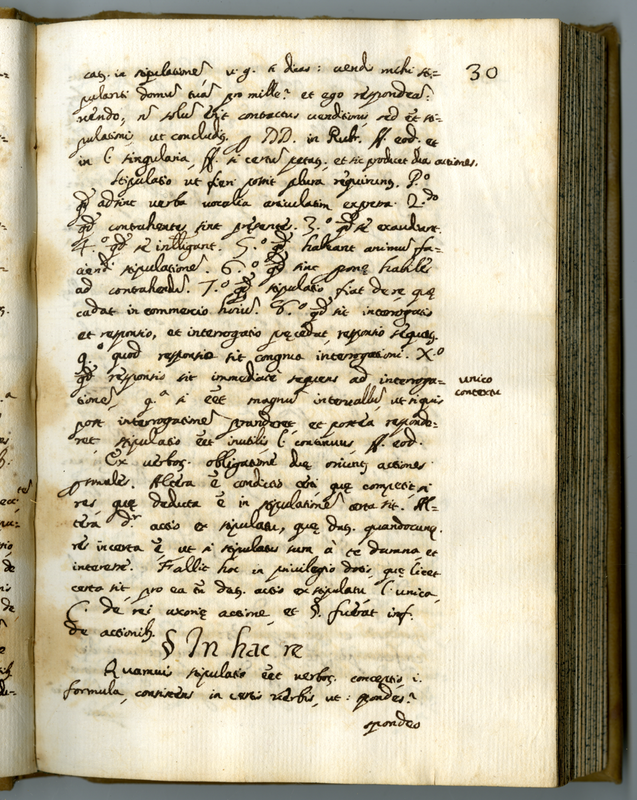 30
in stipulatione v. g. si dicas: vendi mihi sti=
pulanti domum tuam pro mille? et ego respondeam:
vendo, solum erit contractus venditionis sed et sti=
pulationis ut concludunt DD. in Rubr. ff. eod. et
in l. singularia, ff. si certum petat. et sic producet duas actiones.
Stipulatio ut fieri possit plura requiruntur. P.º
qd adsint verba vocalia articulatim expressa. 2.do
qd contrahentes sint presentes. 3.º qd se exaudiant.
4.º qd se intelligant. 5.º qd habeant animum fa=
ciendi stipulationem. 6.º qd sint personę habiles
ad contrahendum. 7.º qd stipulatio fiat de re quę
cadat in commercio hominum. 8.º qd sit interrogatio
et responsio, et interrogatio pręcedat, responsio sequatur.
9.º quod responsio sit congrua interrogationi. X.º
qd responsio sit immediate sequens ad interroga=
unico
contextu
tionem, q.a si esset magnum intervallum, ut si quis
post interrogationem pranderet, et postea responde=
ret stipulatio est inutilis l. continuus, ff. eod.
Ex verbor. obligatione duę oriuntur actiones
personales. Altera ē condictio certi quę competit, si
res quę deducta ē in stipulatione certa sit. Al=
tera dr actio ex stipulatu, quę datur quandocunq.
res incerta ē ut si stipulatus sum à te damna et
interesse. Fallit hoc in privilegio dotis, quę licet
certa sit, pro ea tn datur actio ex stipulatu l. unica,
C. de rei uxorię actione, et §. fuerat inf.
de actionib.
§ In hac re
Quamvis stipulatio esset verbor. conceptio i.
formula, consistens in certis verbis, ut: spondes?
spondeo